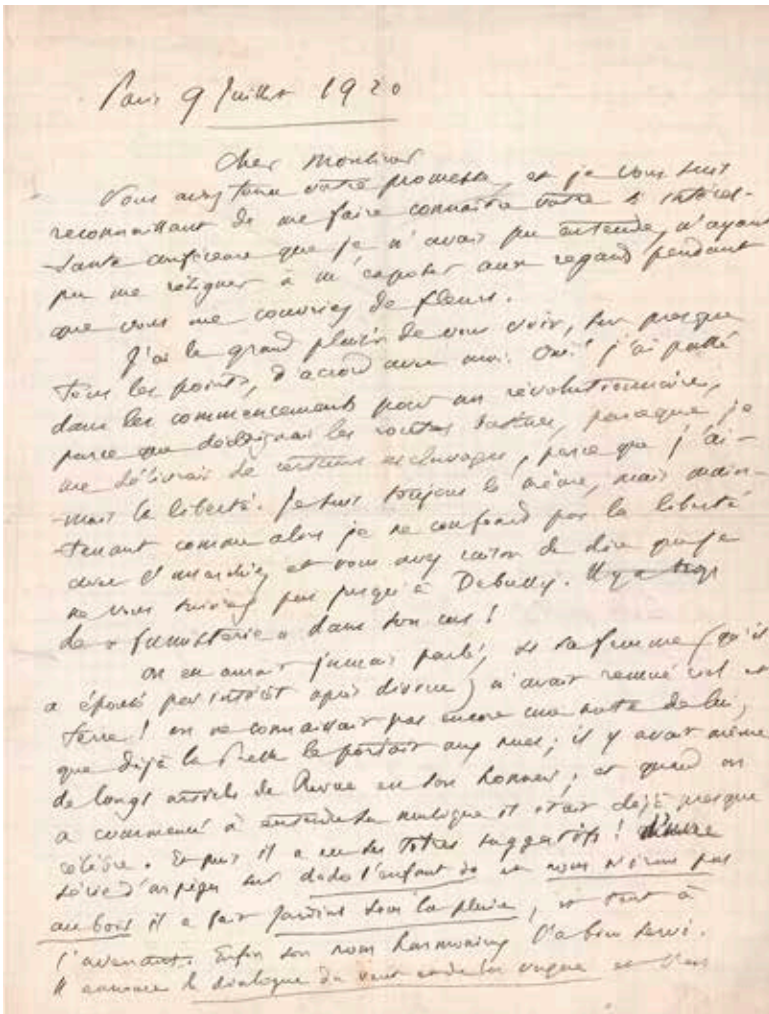 Paris 9 Juillet 1920
Cher Monsieur
Vous avez tenu votre promesse, et je vous suis
reconnaissant de me faire connaître votre si intéres-
sante conférence que je n'avais pu entendre, n'ayant
pu me résigner à m'exposer aux regard pendant
que vous me couvriez de fleurs.
J'ai le grand plaisir de vous voir, sur presque
tous les points, d'accord avec moi. Oui! j'ai passé
dans les commencements pour un révolutionnaire,
parce que dédaignais les routes battues, parce que je
me délivrais de certains esclavages, parce que j'ai-
-mais la liberté. Je suis toujours le même, mais main-
-tenant comme alors je ne confond pas la liberté
avec l'anarchie, et vous avez raison de dire que je
ne vous suivrez pas jusqu'à Debussy. Il y a trop
de « fumisterie » dans son cas!
on en aurait jamais parlé, si sa femme (qu'il
a épousé par intérêt après divorce) n'avait remué ciel et
terre! on ne connaissait pas encore une note de lui,
que déjà la Presse le portait aux nues; il y avait même
de longs articles de Revue en son honneur; et quand on
a commencé à entendre sa musique il était déjà presque
célèbre. Et puis il a eu des titres suggestifs! d'une
série d'arpèges sur dodo l'enfant do et nous n'irons plus
au bois il a fait Jardins sous la pluie, et tout à
l'avenant. Enfin son nom harmonieux l'a bien servi.
Il annonce le dialogue du vent et de la vague et l'on